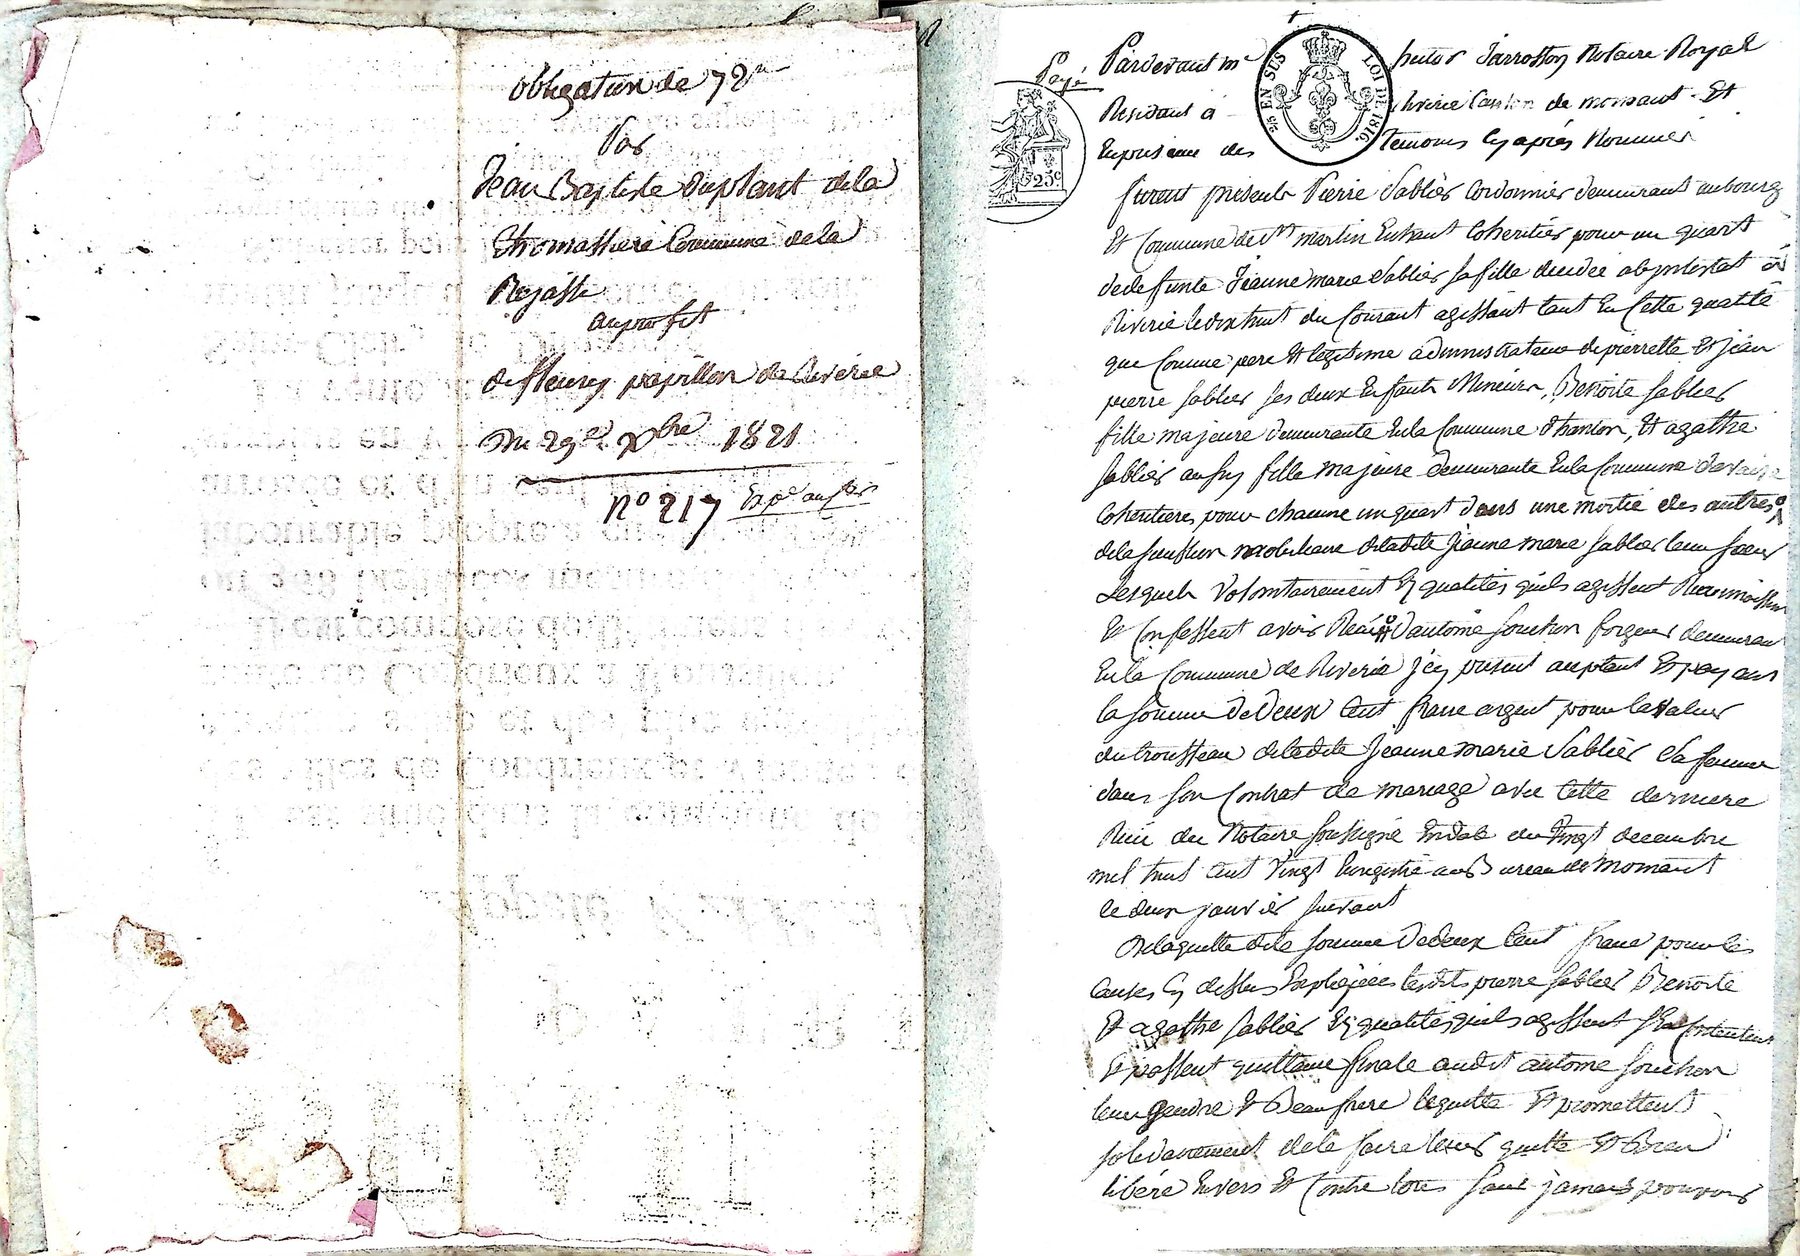 obligation de 78
Par
Jean Baptiste Duplant de la
thomassiere Commune de la
Rajasse
au profit
de fleury papillon de Riverie
Du 29 Xbre 1821
N° 217
Payé
Pardevant me hector Jarrosson Notaire Royal
Residant a Riverie Canton de mornant Et
En presence des temoins cy après Nommés
furent presents Pierre Sablier Cordonnier demeurant au bourg
Et Commune de St martin En haut Coheritier pour un quart
de defunte Jeanne marie Sablier sa fille decedée abintestat à
Riverie le dix huit du Courant agissant tant En Cette qualité
que Comme pere Et legitime administrateur de pierrette Et jean
pierre Sablier ses deux Enfants Mineurs, Benoite Sablier
fille majeure demeurante En la Commune d'hanton, Et agathe
Sablier aussy fille majeure demeurante En la Commune
Coheritieres pour chacune un quart dans une moitié des autres
de la succession mobiliaire de ladite jeanne marie Sablier leur soeur
Lesquels Volontairement Es qualités qu'ils agissent Reconnoissent
Et Confessent avoir Reçu d'antoine Souchon forgeur demeurant
En la Commune de Riverie jcy present acceptant Et payant
la somme de Deux Cent franc argent pour la Valeur
du trousseau de ladite Jeanne marie Sablier Sa femme
dans son Contrat de mariage avec Cette derniere
Reçu du Notaire soussigné En date du Vingt decembre
mil huit Cent Vingt Enregistré au Bureau de Mornant
le deux janvier suivant
De laquelle dite somme De deux Cent franc pour les
Causes Cy dessus Expliquées lesdits pierre Sablier Benoite
Et agathe Sablier Es qualités qu'ils agissent Se Contentent
Et passent quittance finale audit antoine Souchon
leur gendre Et Beau frere l'equitte Et promettent
solidairement de le faire tenir quitte Et Bien
libéré Envers Et Contre tous sans jamais pouvoir
EN SUS
LOI DE 1816.
25c